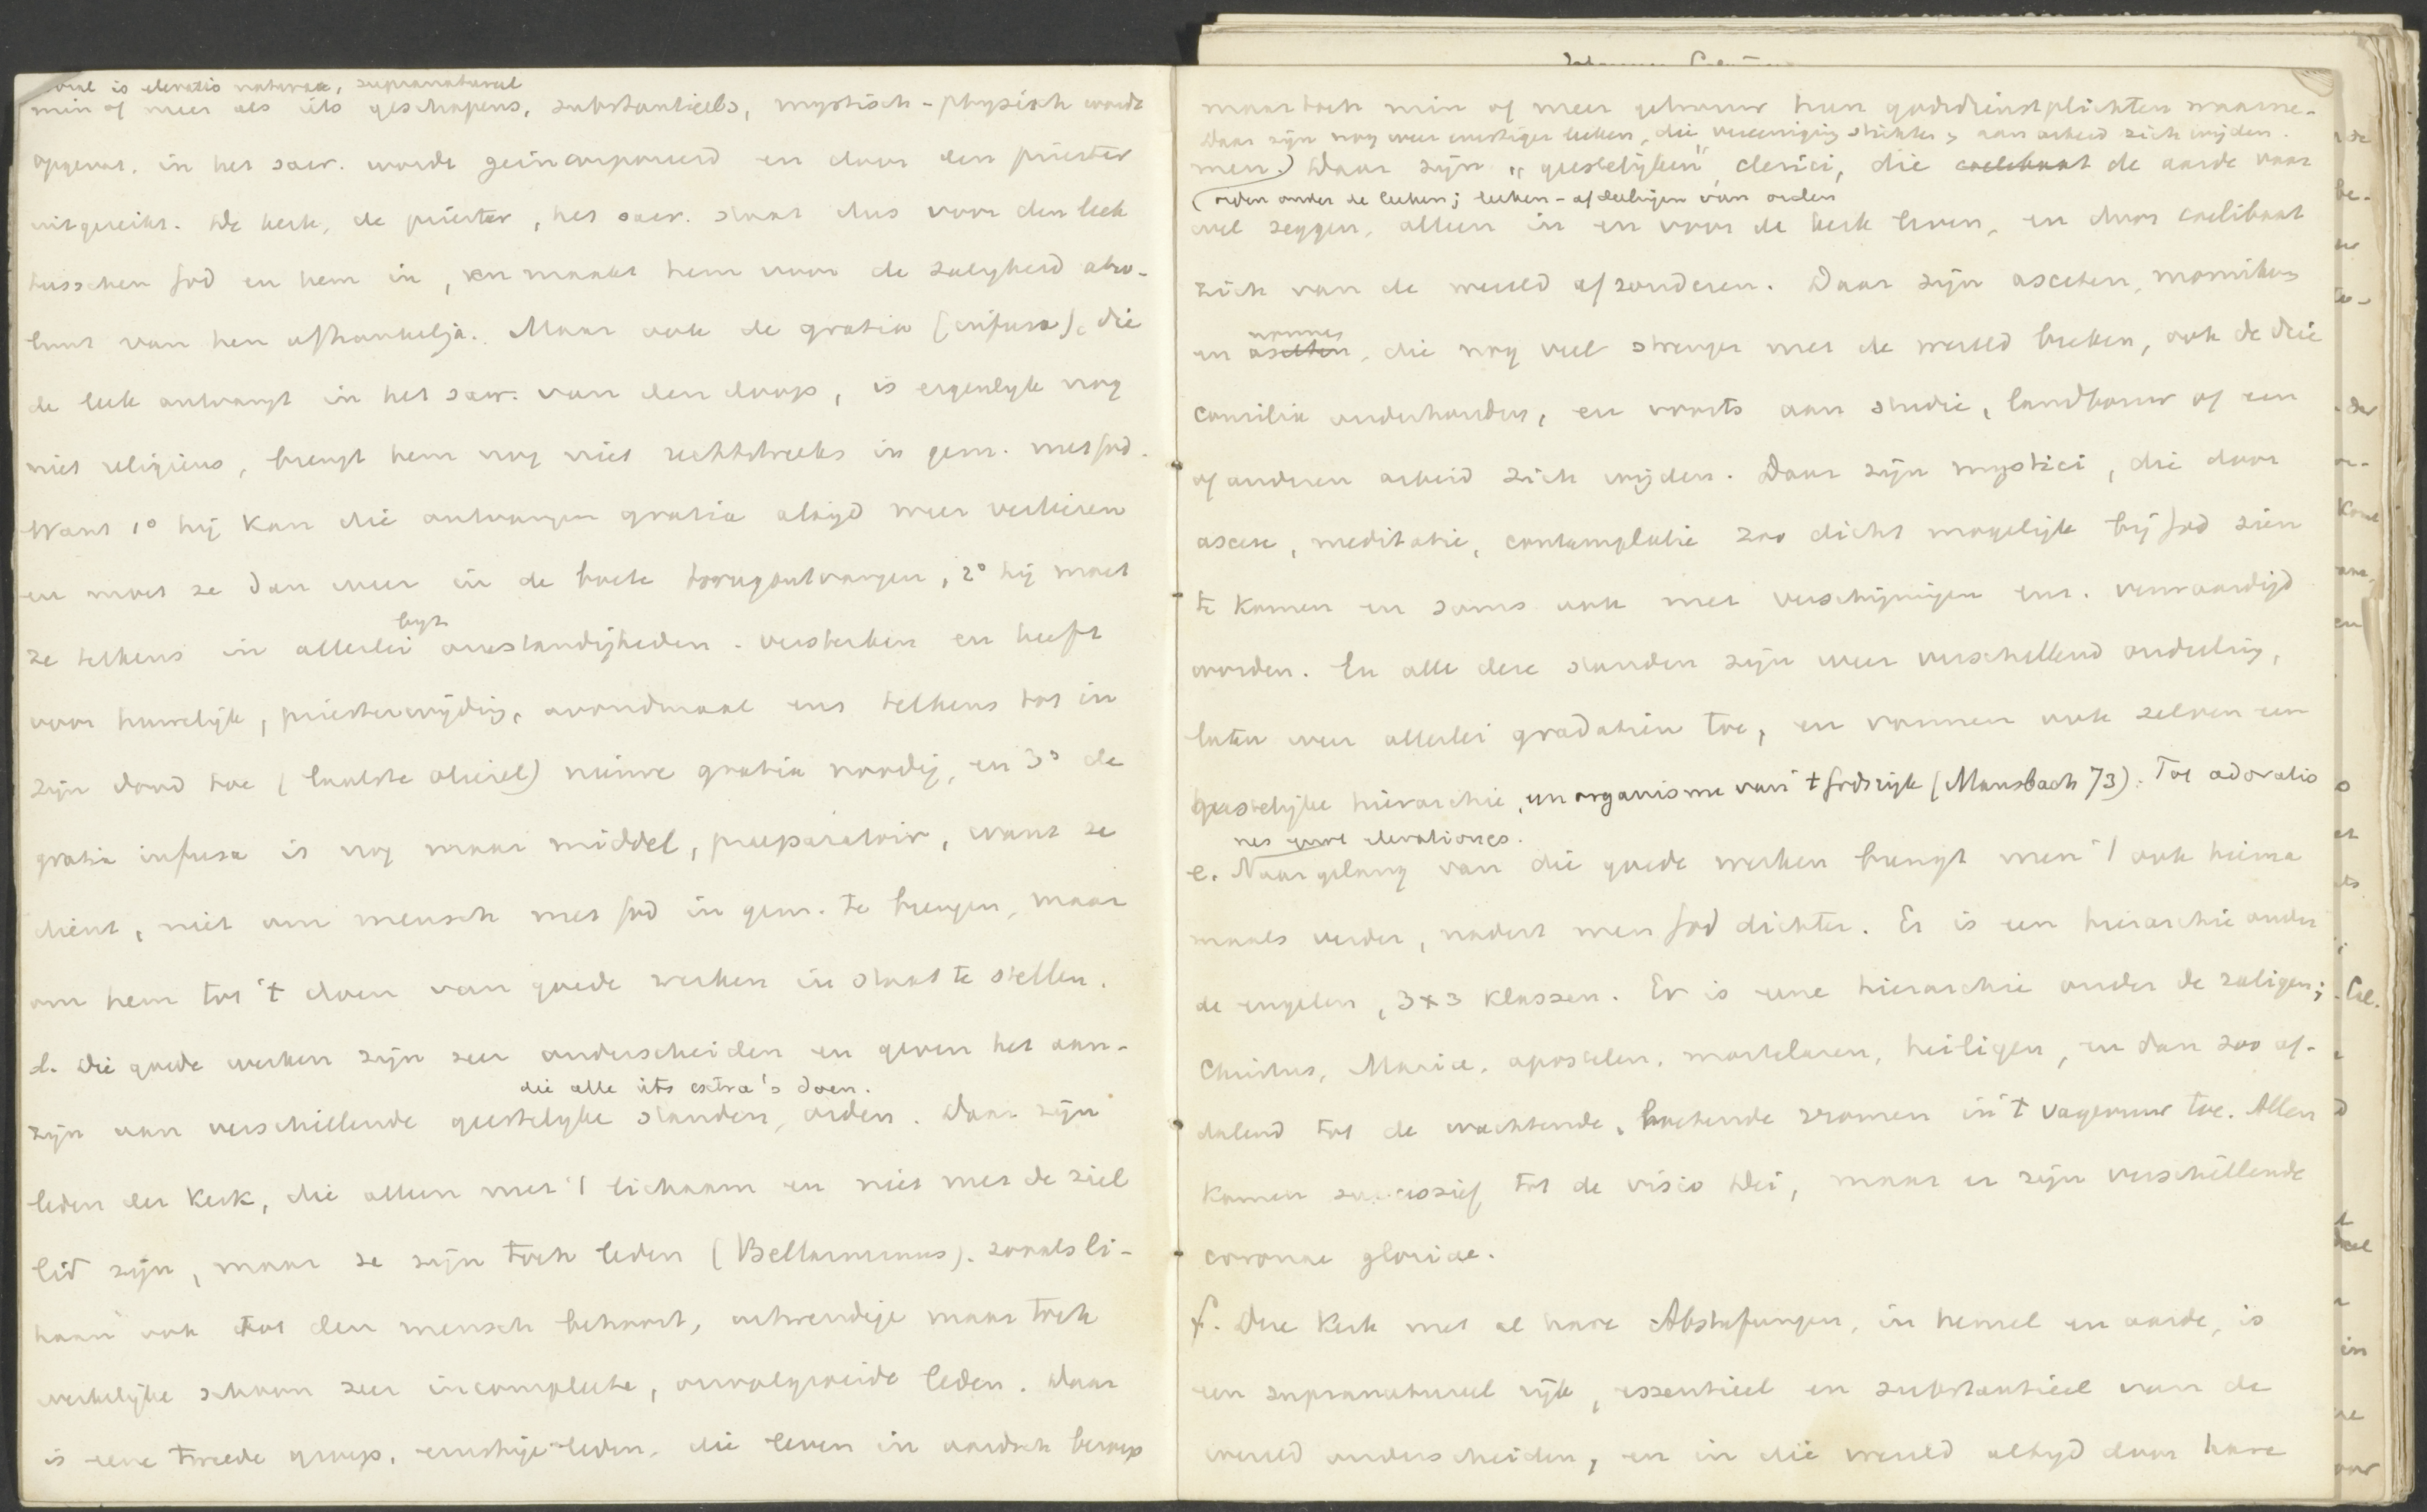 is elevatio naturae, supranatureel
min of meer als iets geschapens, substantieels, mystisch-physisch wordt
opgevat. in het sacr. wordt geïncorporeerd en door den priester
uitgereikt. De kerk, de priester, het sacr. staat dus voor den leek
tusschen God en hem in, en maakt hem voor de zaligheid abso-
luut van hen afhankelijk. Maar ook de gratia (infusa), die
de leek ontvangt in het sacr. van den doop, is eigenlyk nog
niet religieus, brengt hem nog niet rechtstreeks in gem. met God.
Want 1° hij kan die ontvangen gratia altijd weer verliezen
en moet ze dan weer in de boete terugontvangen, 2° hij moet
ze telkens in allerlei byz. omstandigheden versterken en heeft
voor huwelijk, priesterwijding, avondmaal enz telkens tot in
zijn dood toe (laatste oliesel) nieuwe gratia noodig, en 3° de
gratia infusa is nog maar middel, praeparatoir, want ze
dient, niet om mensch met God in gem. te brengen, maar
om hem tot 't doen van goede werken in staat te stellen.
d. Die goede werken zijn zeer onderscheiden en geven het aan-
die alle iets extra's doen.
zijn aan verschillende geestelyke standen, orden. Daar zijn
leden der Kerk, die alleen met 't lichaam en niet met de ziel
lid zijn, maar ze zijn toch leden (Bellarminus). zooals li-
haam ook tot den mensch behoort, uitwendige maar toch
werkelijke schoon zeer incomplete, onvolgroeide leden. Daar
is eene tweede groep, ernstige leden, die leven in aardsch beroep
maar toch min of meer getrouw hun godsdienstplichten waarne-
Daar zijn nog weer ernstiger leeken, die vereeniging stichten, aan arbeid zich wijden.
men.) Daar zijn "geestelijken", clerici, die caelibaat de aarde vaar
(orden onder de leeken; leeken-afdeelingen van orden
wel zeggen, alleen in en voor de kerk leven, en door caelibaat
zich van de wereld afzonderen. Daar zijn asceten, monniken
nonnes
en asceten, die nog veel strenger met de wereld breken, ook de drie
consilia onderhouden, en voorts aan studie, landbouw of een
of anderen arbeid zich wijden. Daar zijn mystici, die door
ascese, meditatie, contemplatie zoo dicht mogelijk bij God zien
te komen en soms ook met verschijningen enz. verwaardigd
worden. En alle deze standen zijn weer verschillend onderling,
laten weer allerlei gradatiën toe, en vormen ook zelven een
geestelijke hiërarchie, een organisme van 't Godsrijk (Mausbach 73). Tot adoratio
nes quae elevationes.
e. Naar gelang van die goede werken brengt men 't ook hierna
maals verder, nadert men God dichter. Er is een hierarchie onder
de engelen, 3x3 klassen. Er is eene hierarchie onder de zaligen;
Christus, Maria, apostelen, martelaren, heiligen, en dan zoo af-
dalend tot de wachtende, boetende vromen in 't vagevuur toe. Allen
komen successief tot de visio Dei, maar er zijn verschillende
coronae gloriae.
f. Deze Kerk met al hare Abstufungen, in hemel en aarde, is
een supranatureel rijk, essentieel en substantieel van de
wereld onderscheiden, en in die wereld altyd door hare